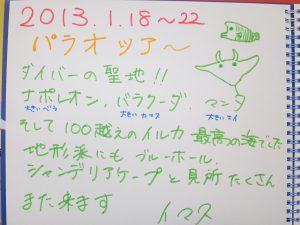 2013.1.18～22
パラオツアー
ダイバーの聖地!!
ナポレオン、バラクーダ、マンタ
大きいベラ 大きいカマス 大きいエイ
そして100越えのイルカ 最高の海でした
地形派にも ブルーホール、
シャンデリアケーブと見所たくさん
また来ます
イマス